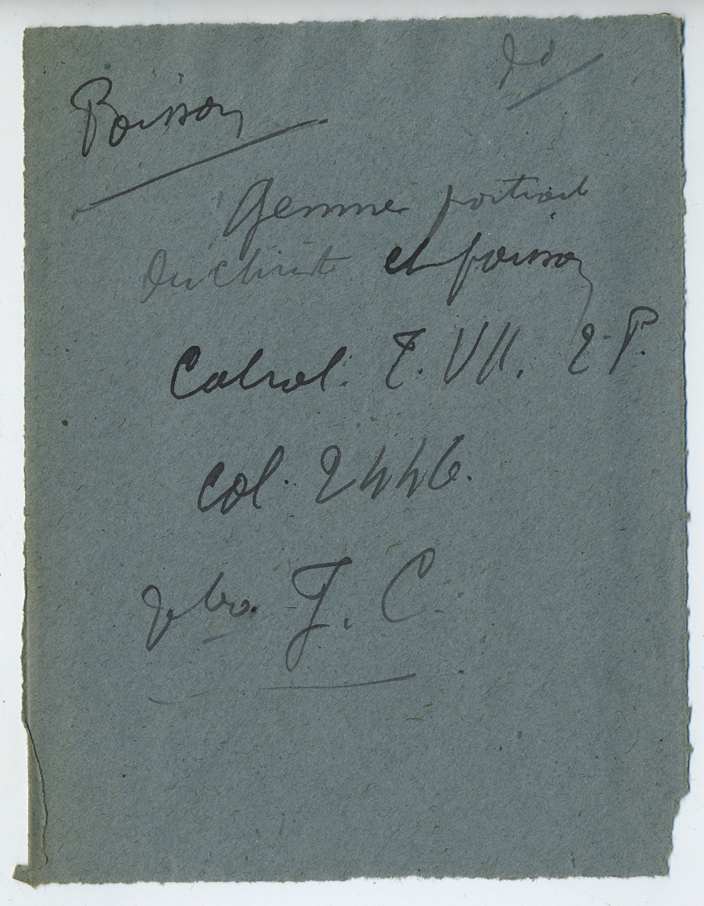 Poisson
Gemme portrait
du Christ et poisson
Cabrol. T. VII. 2 P.
Col. 2446.
J. C.